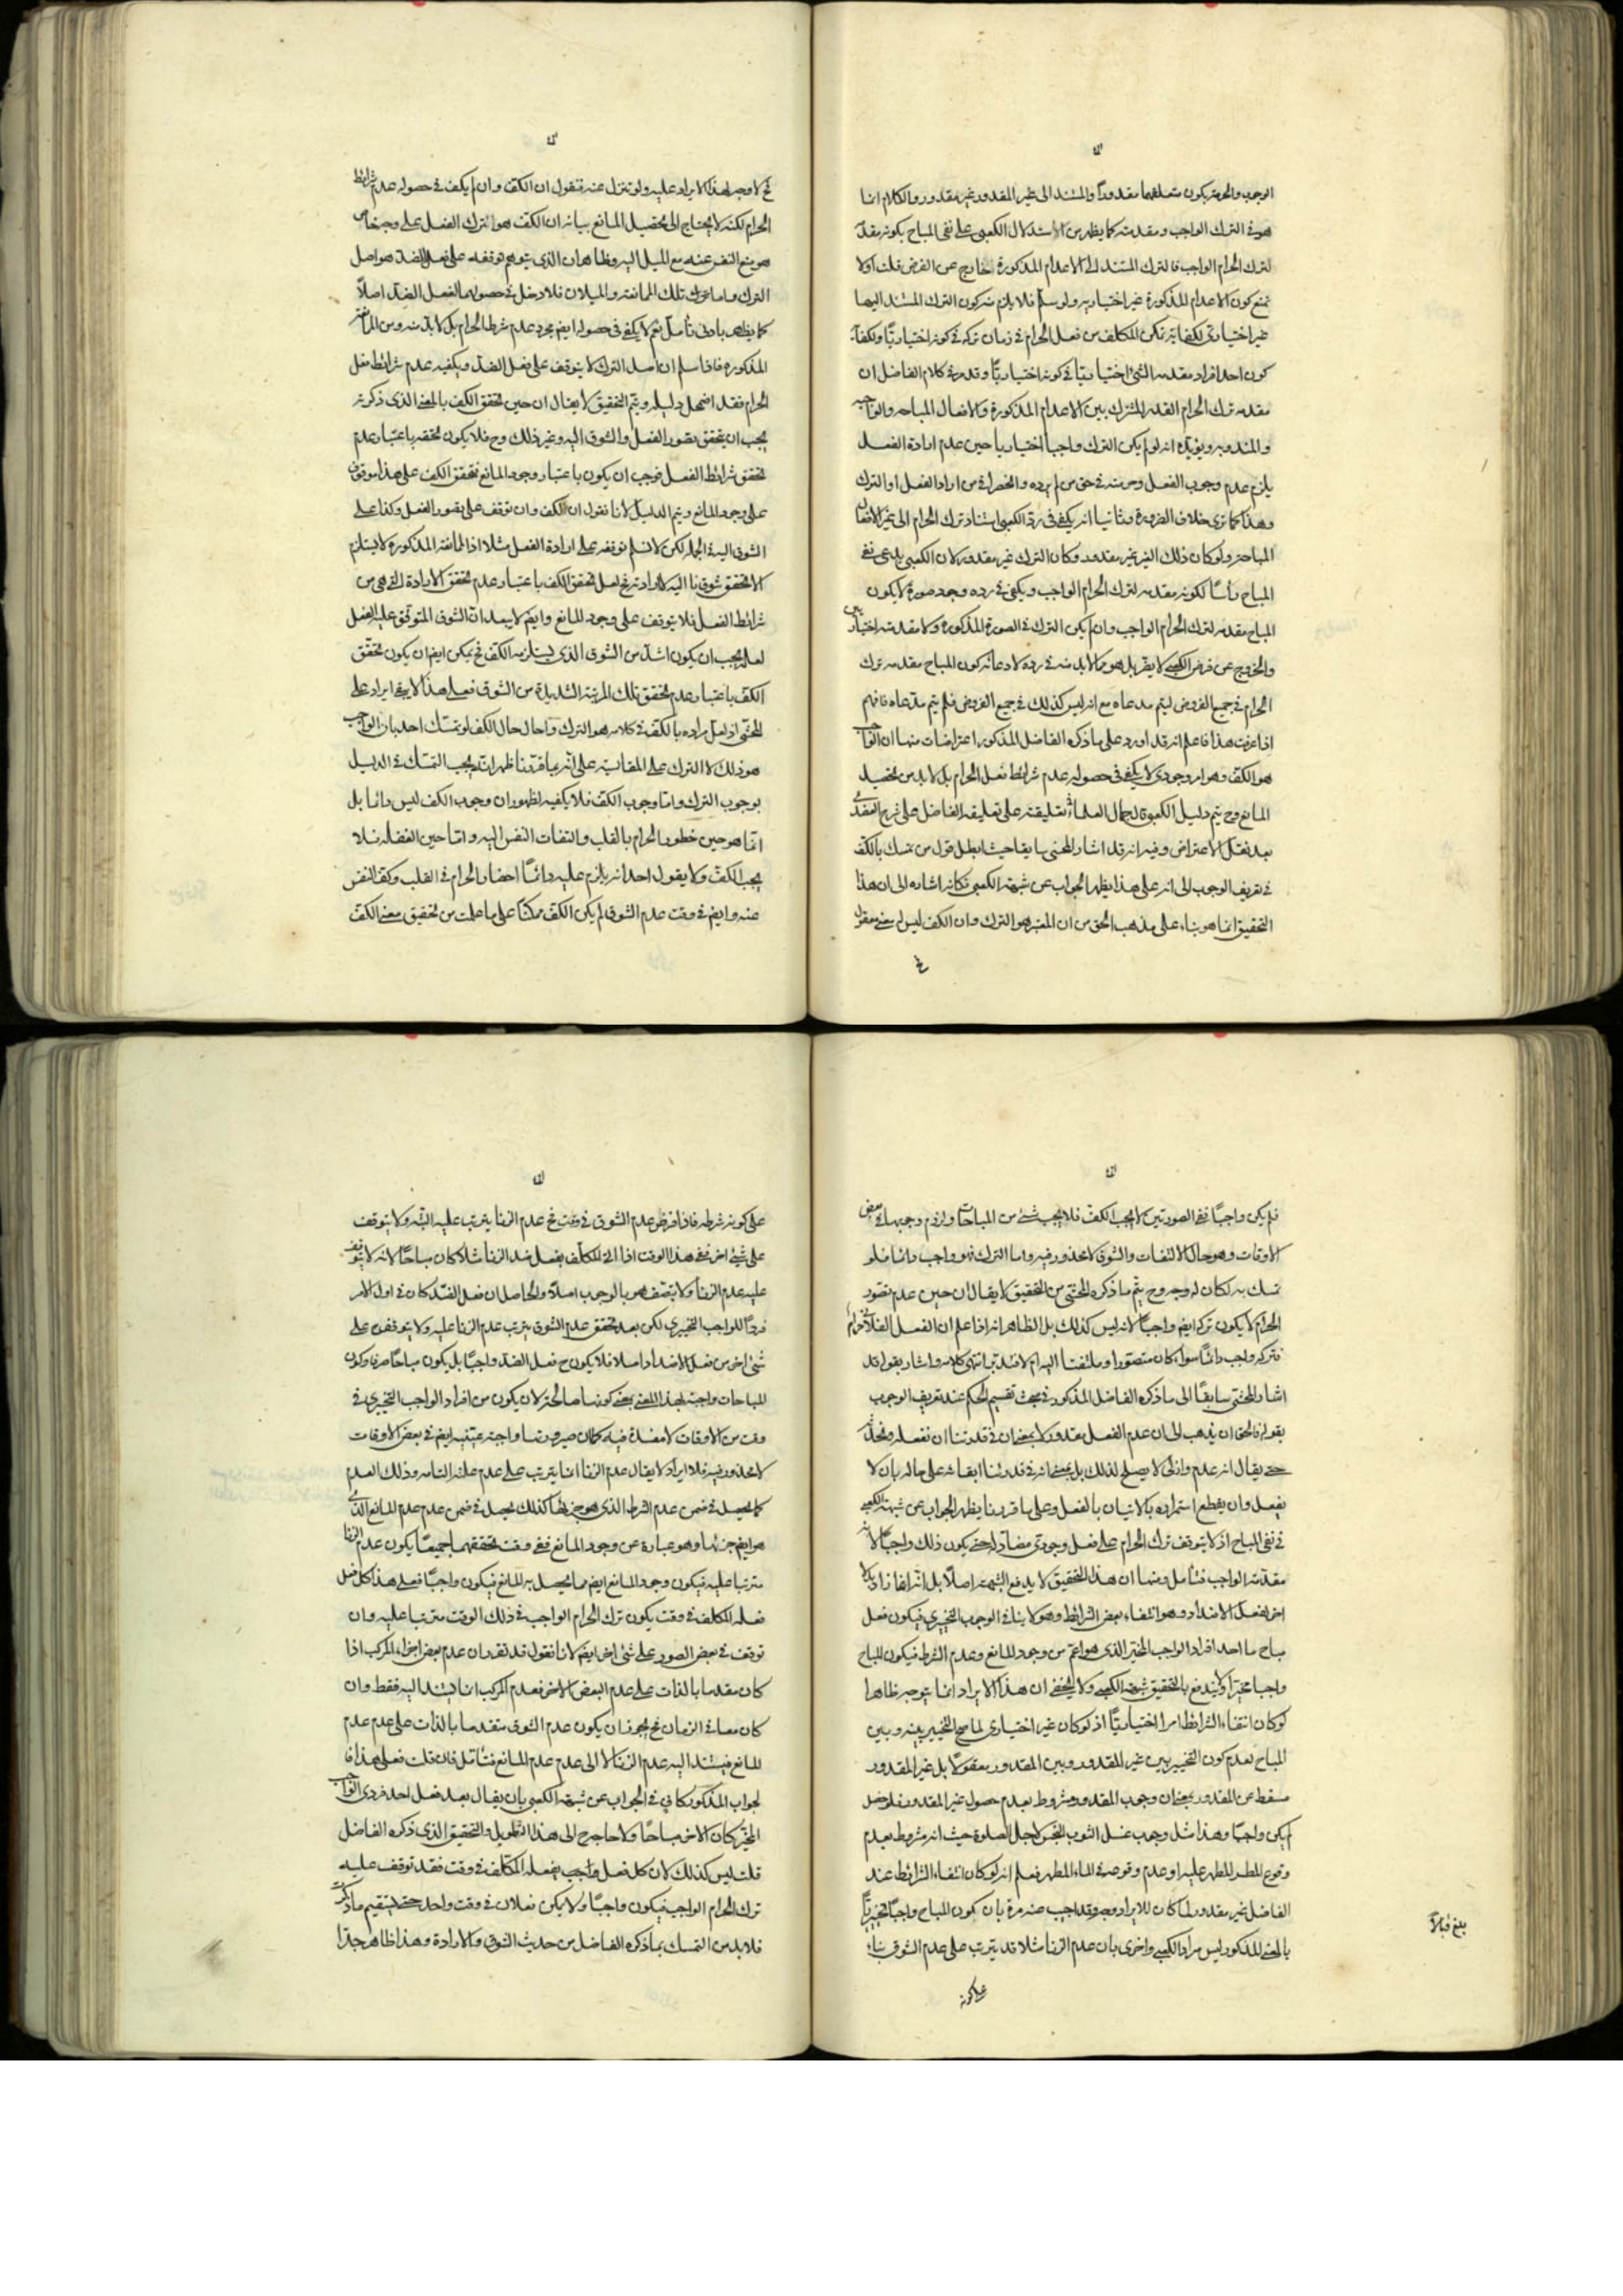 الوجوب والحرمة يكون متعلقهما مقدوراً والمستند الى غير المقدور غير مقدور والكلام انما
هو في الترك الواجب ومقدمته كما يظهر من استدلال الكعبي على نفي المباح بكونه مقدمة
لترك الحرام الواجب فالترك المستند الى الاعدام المذكورة خارج عن الفرض قلت اولا
نمنع كون الاعدام المذكورة غير اختيارية ولو سلم فلا يلزم منه كون الترك المستند اليها
غير اختياري لكفاية تمكن المكلف من فعل الحرام في زمان تركه في كونه اختيارياً ولكفاية
كون احد افراد مقدمة الشئ اختيارياً في كونه اختيارياً وقد مر في كلام الفاضل ان
مقدمة ترك الحرام القدر المشترك بين الاعدام المذكورة والافعال المباحة والواجبة
والمندوبة ويؤيده انه لو لم يكن الترك واجباً اختيارياً حين عدم ارادة الفعل
يلزم عدم وجوب الفعل وحرمته في حق من لم يرده وانحصرا في من اراد الفعل او الترك
وهذا كما ترى خلاف الضرورة وثانيا انه يكفي في رد الكعبي استناد ترك الحرام الى غير الافعال
المباحة ولو كان ذلك الغير غير مقدور وكان الترك غير مقدور لان الكعبي يدعي نفي
المباح رأساً لكونه مقدمة لترك الحرام الواجب ويكفي في رده وجود صورة لا يكون
المباح مقدمة لترك الحرام الواجب وان لم يكن الترك في الصورة المذكورة ولا مقدمته اختياريين
والخروج عن فرض الكعبي لا يضر بل هو مما لابد منه في رده لادعائه كون المباح مقدمة ترك
الحرام في جميع الفروض ليتم مدعاه مع انه ليس كذلك في جميع الفروض فلم يتم مدعاه فافهم
اذا عرفت هذا فاعلم انه قد اورد على ما ذكره الفاضل المذكور اعتراضات منها ان الواجب
هو الكف وهو امر وجودي لا يكفي في حصوله عدم شرائط فعل الحرام بل لابد من تحصيل
المانع وح يتم دليل الكعبي قال جمال العلماء في تعليقته على تعليقه الفاضل على شرح العضدي
بعد نقل الاعتراض وفيه انه قد اشار المحشي سابقا حيث ابطل قول من تمسك بالكف
في تعريف الوجوب الى انه على هذا يظهر الجواب عن شبهة الكعبي فكانه اشار الى ان هذا
التحقيق انما هو بناء على مذهب الحق من ان المعتبر هو الترك وان الكف ليس له معنى معقول
فح
فح لا وجه لهذا الايراد عليه ولو تنزل عنه فنقول ان الكف وان لم يكف في حصوله عدم شرائط
الحرام لكنه لا يحتاج الى تحصيل المانع بيانه ان الكف هو الترك الفعل على وجه خاص
هو منع النفس عنه مع الميل اليه وظاهر ان الذي يتوهم توقفه على فعل الضد هو اصل
الترك واما تلك الممانعة والميلان فلا دخل في حصولهما لفعل الضد اصلاً
كما يظهر بادنى تأمل نعم لا يكفي في حصوله ايضم مجرد عدم شرط الحرام بل لابد منه ومن الممانعة
المذكورة فاذا سلم ان اصل الترك لا يتوقف على فعل الضد ويكفيه عدم شرائط فعل
الحرام فقد اضمحل دليله ويتم التحقيق لا يقال ان حين تحقق الكف بالمعنى الذي ذكرته
يجب ان يتحقق تصور الفعل والشوق اليه وغير ذلك وح فلا يكون تحققه باعتبار عدم
تحقق شرائط الفعل فوجب ان يكون باعتبار وجود المانع فتحقق الكف على هذا موقوف
على وجود المانع ويتم الدليل لانا نقول ان الكف وان توقف على تصور الفعل وكذا على
الشوق اليه في الجملة لكن لا نسلم توقفه على ارادة الفعل مثلا اذ الممانعة المذكورة لا يستلزم
الا تحقق شوق ما اليه لا ارادته فح لعل تحقق الكف باعتبار عدم تحقق الارادة التي هي من
شرائط الفعل فلا يتوقف على وجود المانع وايضم لا يبعد ان الشوق المتوقف عليه الفعل
لعله يجب ان يكون اشد من الشوق الذي يستلزمه الكف فح يمكن ايضم ان يكون تحقق
الكف باعتبار عدم تحقق تلك المرتبة الشديدة من الشوق فعلى هذا لا يبقى ايراد على
المحشي اذ لعل مراده بالكف في كلامه هو الترك واحال حال الكف لو تمسك احد بان الواجب
هو ذلك لا الترك على المقايسة على انه بما قررنا ظهر انه يجب التمسك في الدليل
بوجوب الترك واما وجوب الكف فلا يكفيه لظهور ان وجوب الكف ليس دائما بل
انما هو حين خطور الحرام بالقلب والتفات النفس اليه واما حين الغفلة فلا
يجب الكف ولا يقول احد انه يلزم عليه دائماً احضار الحرام في القلب وكف النفس
عنه وايضم في وقت عدم الشوق لم يكن الكف ممكناً على ما علمت من تحقيق معنى الكف
فلم يكن واجباً ففي الصورتين لا يجب الكف فلا يجب شئ من المباحات ولزوم وجوبها في بعض
الاوقات وهو حال الالتفات والشوق لا محذور فيه واما الترك فهو واجب دائما فلو
تمسك به لكان له وجه وح يتم ما ذكره المحشي من التحقيق لا يقال ان حين عدم تصور
الحرام لا يكون تركه ايضم واجباً لانه ليس كذلك بل الظاهر انه اذا علم ان الفعل الفلاني حرام
فتركه واجب دائماً سواء كان متصورا وملتفتا اليه ام لا فتدبر انتهى كلامه واشار بقوله قد
اشار المحشي سابقاً الى ما ذكره الفاضل المذكور في مبحث تقسيم الحكم عند تعريف الوجوب
بقوله فالحق ان يذهب الى ان عدم الفعل مقدور لا بمعنى ان في قدرتنا ان نفعله ونحدثه
حتى يقال انه عدم وازلي لا يصلح لذلك بل بمعنى انه في قدرتنا ابقاءه على حاله بان لا
يفعل وان يقطع استمراره بالاتيان بالفعل وعلى ما قررنا يظهر الجواب عن شبهة الكعبي
في نفي المباح اذ لا يتوقف ترك الحرام على فعل وجودي مضاد له حتى يكون ذلك واجباً لانه
مقدمة الواجب فتأمل ومنها ان هذا التحقيق لا يدفع الشبهة اصلاً بل انه انما زاد بدلا
اخر لفعل الاضداد وهو انتفاء بعض الشرائط وهو لا ينافي الوجوب التخييري فيكون فعل
مباح ما احد افراد الواجب المخير الذي هو اعم من وجود المانع وعدم الشرط فيكون المباح
واجبا مخيراً ولا يندفع بالتحقيق شبهة الكعبي ولا يخفى ان هذا الايراد انما يتوجه ظاهرا
لو كان انتفاء الشرائط امرا اختيارياً اذ لو كان غير اختياري لما صح التخيير بينه وبين
المباح لعدم كون التخيير بين غير المقدور وبين المقدور معقولاً بل غير المقدور
مسقط عن المقدور بمعنى ان وجوب المقدور مشروط بعدم حصول غير المقدور فلو حصل
لم يكن واجباً وهذا مثل وجوب غسل الثوب النجس لاجل الصلوة حيث انه مشروط بعدم
وقوع المطر المطهر عليه او عدم وقوعه في الماء المطهر فعلم انه لو كان انتفاء الشرائط عند
الفاضل غير مقدور لما كان للايراد وجه وقد اجيب عنه مرة بان كون المباح واجباً تخييرياً
بالمعنى المذكور ليس مراد الكعبي واخرى بان عدم الزنا مثلا قد يترتب على عدم الشوق بناء
على كونه
بلغ قبالا
على كونه شرطه فاذا فرض عدم الشوق في وقت فح عدم الزنا يترتب عليه البتة ولا يتوقف
على شئ اخر ففي هذا الوقت اذا اتى المكلف بفعل ضد الزنا مثلا كان مباحاً لانه لا يتوقف
عليه عدم الزنا ولا يتصف هو بالوجوب اصلاً والحاصل ان فعل الضد كان في اول الامر
فرداً للواجب التخييري لكن بعد تحقق عدم الشوق يترتب عدم الزنا عليه ولا يتوقف على
شئ اخر من فعل الاضداد اصلا فلا يكون ح فعل الضد واجباً بل يكون مباحاً صرفا وكون
المباحات واجبة بهذا المعنى بمعنى كونها صالحة لان يكون من افراد الواجب التخييري في
وقت من الاوقات لا مفسدة فيه كما ان صيرورتها واجبة عينية ايضم في بعض الاوقات
لا محذور فيه فلا ايراد لا يقال عدم الزنا انما يترتب على عدم علته التامة وذلك العدم
كما يحصل في ضمن عدم الشرط الذي هو جزءها كذلك يحصل في ضمن عدم عدم المانع الذي
هو ايضم جزئها وهو عبارة عن وجود المانع ففي وقت تحققهما جميعاً يكون عدم الزنا
مترتبا عليه فيكون وجود المانع ايضم مما يحصل به المانع فيكون واجباً فعلى هذا كل فعل
فعله المكلف في وقت يكون ترك الحرام الواجب في ذلك الوقت مترتبا عليه وان
توقف في بعض الصور على شئ اخر ايضم لانا نقول قد تقرر ان عدم بعض اجزاء المركب اذا
كان مقدما بالذات على عدم البعض الاخر فعدم المركب انما يستند اليه فقط وان
كان معا في الزمان فح يجوز ان يكون عدم الشوق متقدما بالذات على عدم عدم
المانع فيستند اليه عدم الزنا لا الى عدم عدم المانع فتأمل فان قلت فعلى هذا فا
لجواب المذكور كاف في الجواب عن شبهة الكعبي بان يقال بعد فعل احد فردي الواجب
المخير كان الاخر مباحاً ولا حاجة الى هذا التطويل والتحقيق الذي ذكره الفاضل
قلت ليس كذلك لان كل فعل واجب يفعله المكلف في وقت فقد توقف عليه
ترك الحرام الواجب فيكون واجباً ولا يكون فعلان في وقت واحد حتى يستقيم ما ذكرت
فلابد من التمسك بما ذكره الفاضل من حديث الشوق والارادة وهذا ظاهر جدا